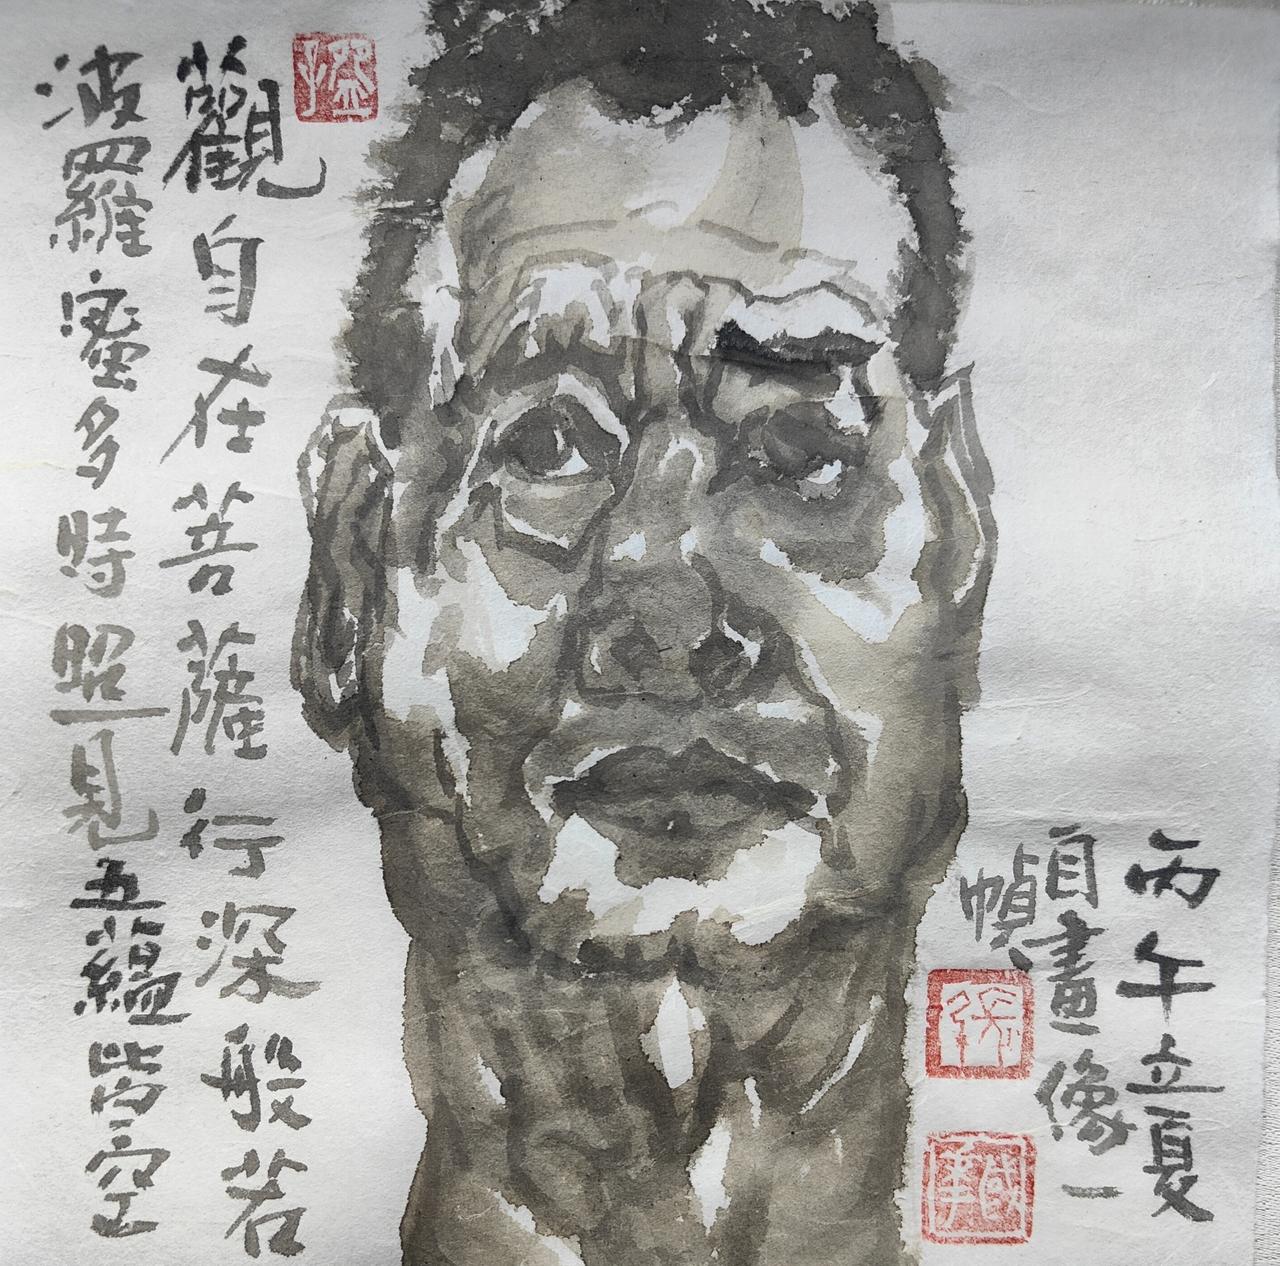 觀自在菩薩行深般若
波羅蜜多時照見五蘊皆空
丙午立夏
自畫像一
幀